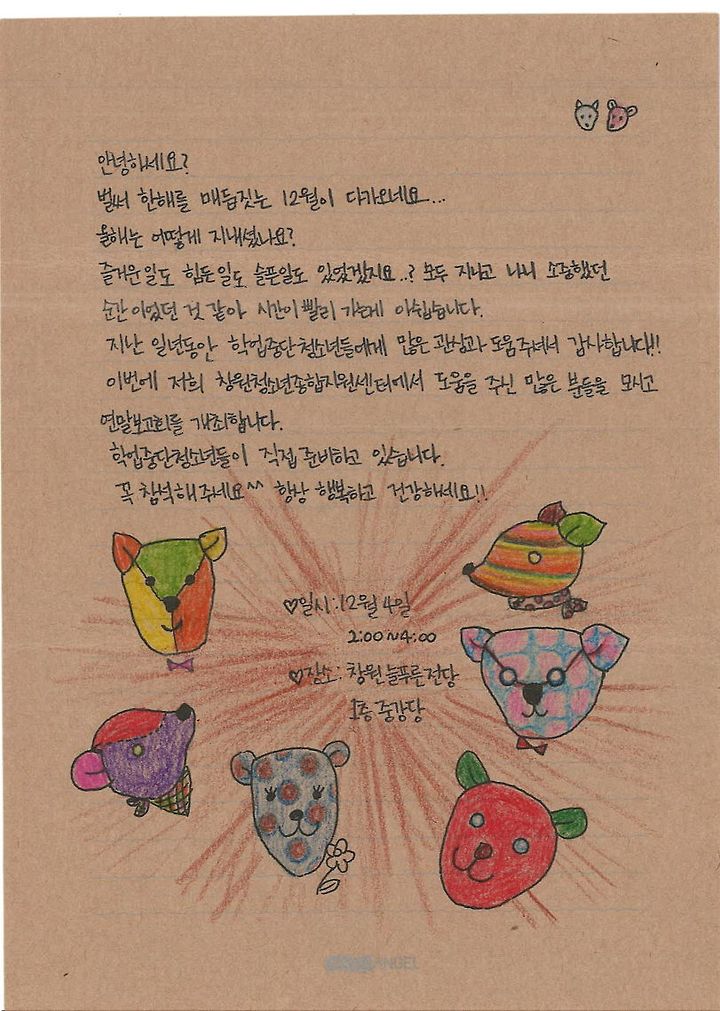 안녕하세요?
벌써 한해를 매듭짓는 12월이 다가오네요...
올해는 어떻게 지내셨나요?
즐거운일도 힘든일도 슬픈일도 있었겠지요..? 모두 지나고 나니 소중했던
순간이었던 것 같아 시간이 빨리 가는게 아쉽습니다.
지난 일년동안 학업중단청소년들에게 많은 관심과 도움주셔서 감사합니다!!
이번에 저희 창원청소년종합지원센터에서 도움을 주신 많은 분들을 모시고
연말보고회를 개최합니다.
학업중단청소년들이 직접 준비하고 있습니다.
꼭 참석해주세요^^ 항상 행복하고 건강하세요!!
♡일시:12월 4일
2:00~4:00
♡장소: 창원늘푸른전당
1층 중강당
ANGEL